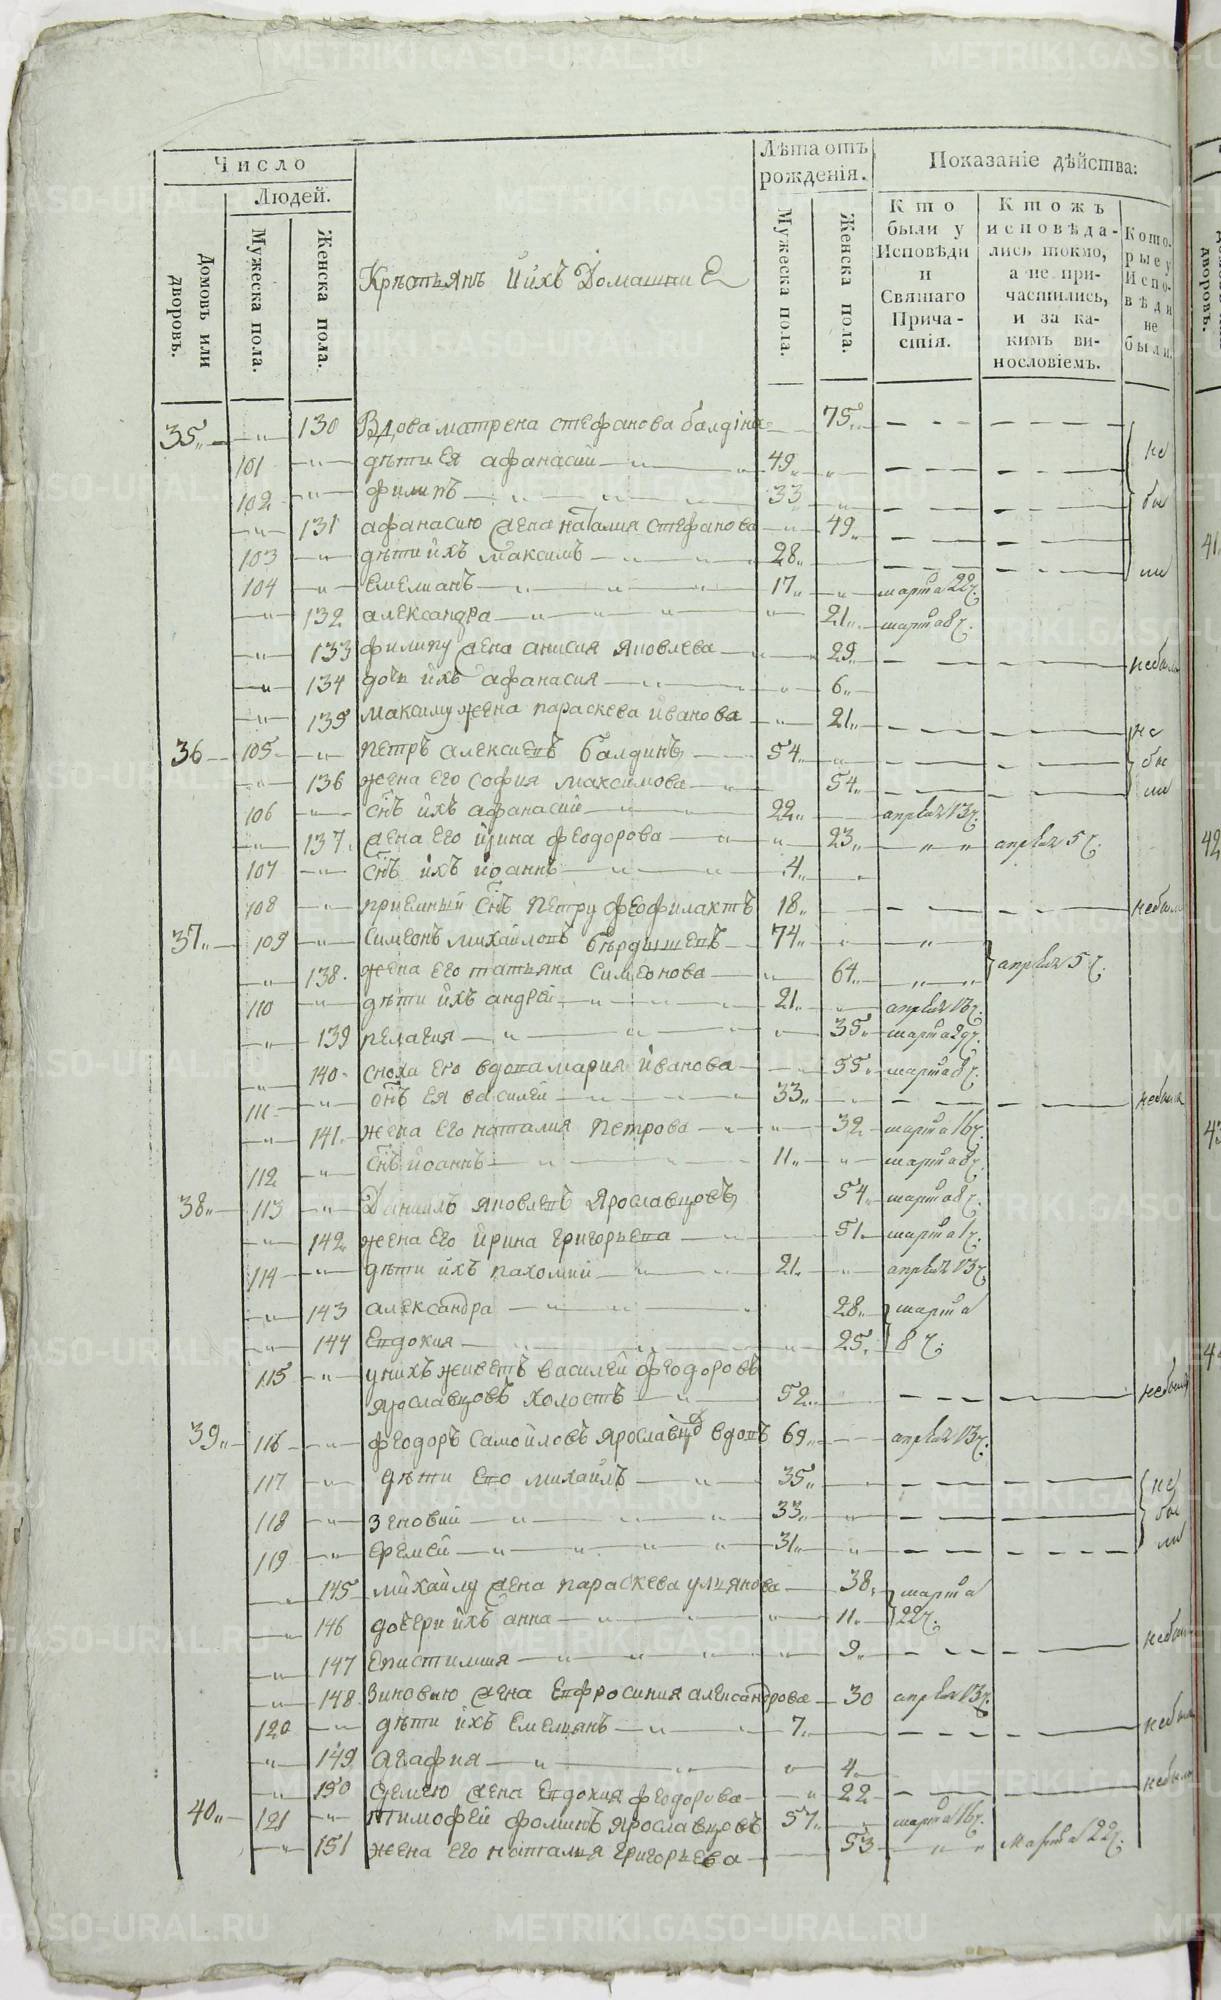 Число
Людей.
Домовъ или дворовъ.
Мужеска пола.
Женска пола.
Крѣстьянъ И ихъ Домашни Е
Лѣта отъ рожденія.
Мужеска пола.
Женска пола.
Показаніе дѣйства:
Кто были у Исповѣди и Святаго Причастія.
Ктожъ исповѣдались токмо, а не причастились, и за какимъ винословіемъ.
Которые у Исповѣди не были.
35 130 Вдова матрена стефанова балдіна 75
101 дѣти Ея афанасий 49 не
102 филипъ 33 бы
131 афанасию жена наталия стефанова 49
103 дѣти ихъ максимъ 28 ли
104 Емелианъ 17 марта 22 ч.
132 александра 21 марта 8 ч.
133 филипу жена анисия яковлева 29 небыли
134 дочь ихъ афанасия 6
135 максиму жена параскева иванова 21 не
36 105 петръ алексиевъ балдинъ 54 бы
136 жена его софия максимова 54 ли
106 снъ ихъ афанасий 22 апреля 13 ч.
137 жена его ирина феодорова 23 апреля 5 ч.
107 снъ ихъ иоаннъ 4
108 приемный снъ петру феофилактъ 18 небыли
37 109 симеонъ михайловъ бердышевъ 74
138 жена его татьяна симеонова 64 апреля 5 ч.
110 дѣти ихъ андрей 21 апреля 13 ч.
139 пелагия 35 марта 29 ч.
140 сноха его вдова мария иванова 55 марта 8 ч.
111 снъ ея василей 33 небыли
141 жена его наталия петрова 32 марта 16 ч.
112 снъ иоаннъ 11 марта 8 ч.
38 113 Даниилъ яковлевъ Ярославцовъ 54 марта 8 ч.
142 жена его ирина григорьева 51 марта 1 ч.
114 дѣти ихъ пахомий 21 апреля 13 ч.
143 александра 28 марта
144 Евдокия 25 8 ч.
115 у нихъ живетъ василей феодоровъ
ярославцовъ холостъ 52 небылъ
39 116 феодоръ самойловъ ярославцовъ вдовъ 69 апреля 13 ч.
117 дѣти его михайлъ 35 не
118 зеновий 33 бы
119 еремей 31 ли
145 михайлу жена параскева улиянова 38 марта
146 дочери ихъ анна 11 22 ч.
147 Епистимия 9 небыли
148 Зиновию жена Ефросиния александрова 30 апреля 13 ч.
120 дѣти ихъ Емелиянъ 7 небылъ
149 агафия 4
150 еремею жена Евдокия феодорова 22 небыли
40 121 тимофей фоминъ ярославцовъ 57 марта 16 ч.
151 жена его наталия григорьева 53 марта 22 ч.
METRIKI.GASO-URAL.RU